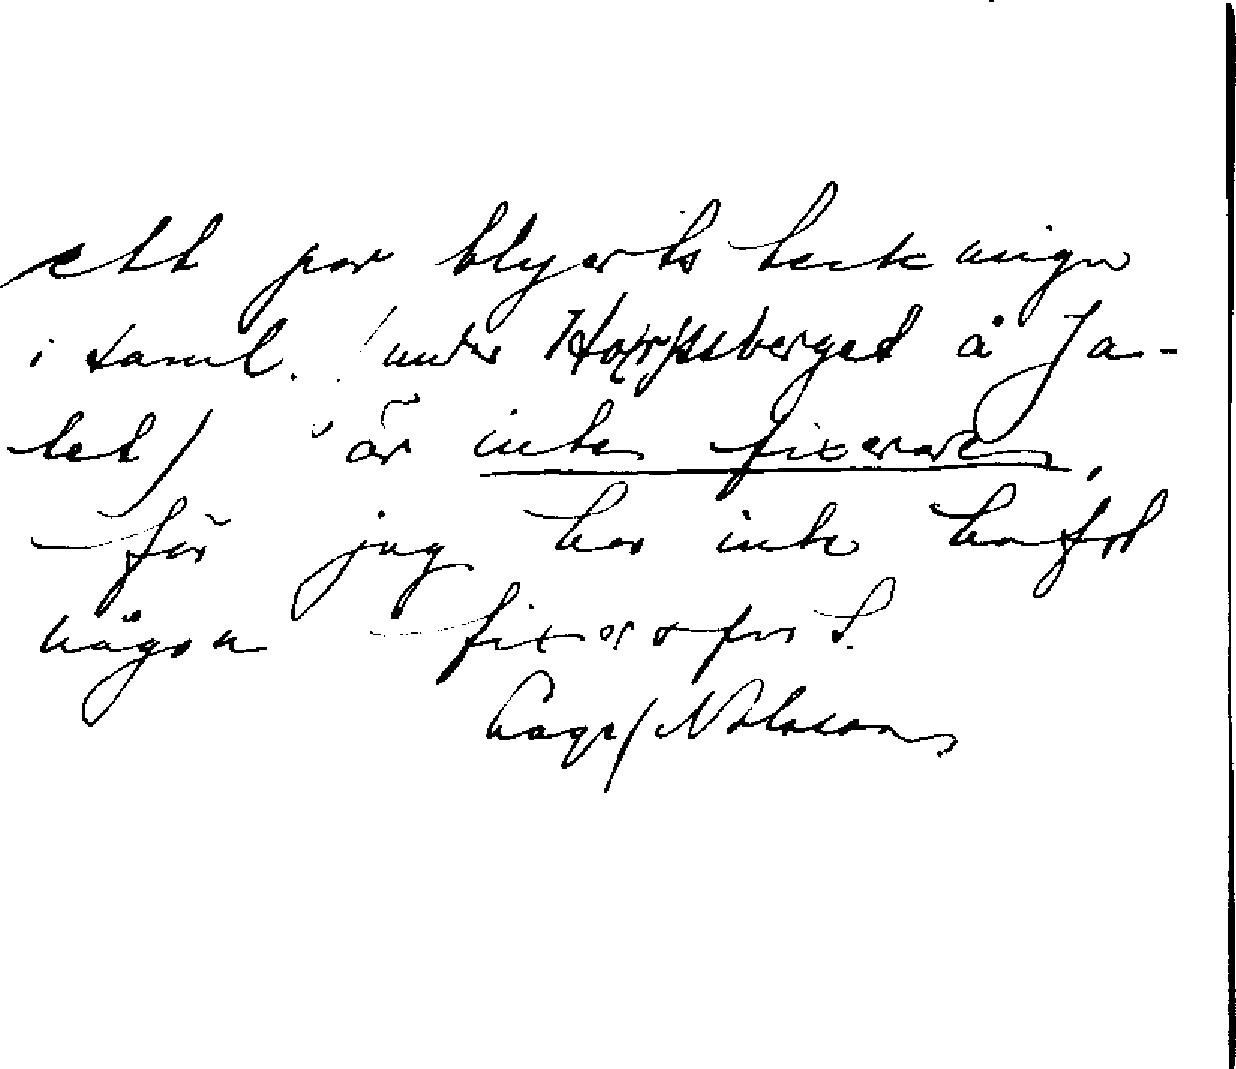 ett par blyertsteckningar
i saml. (under Hoppsberget å Ja-
let) är inte fixerade,
för jag har inte haft
någon fixersprut.
Aage/Nilsson